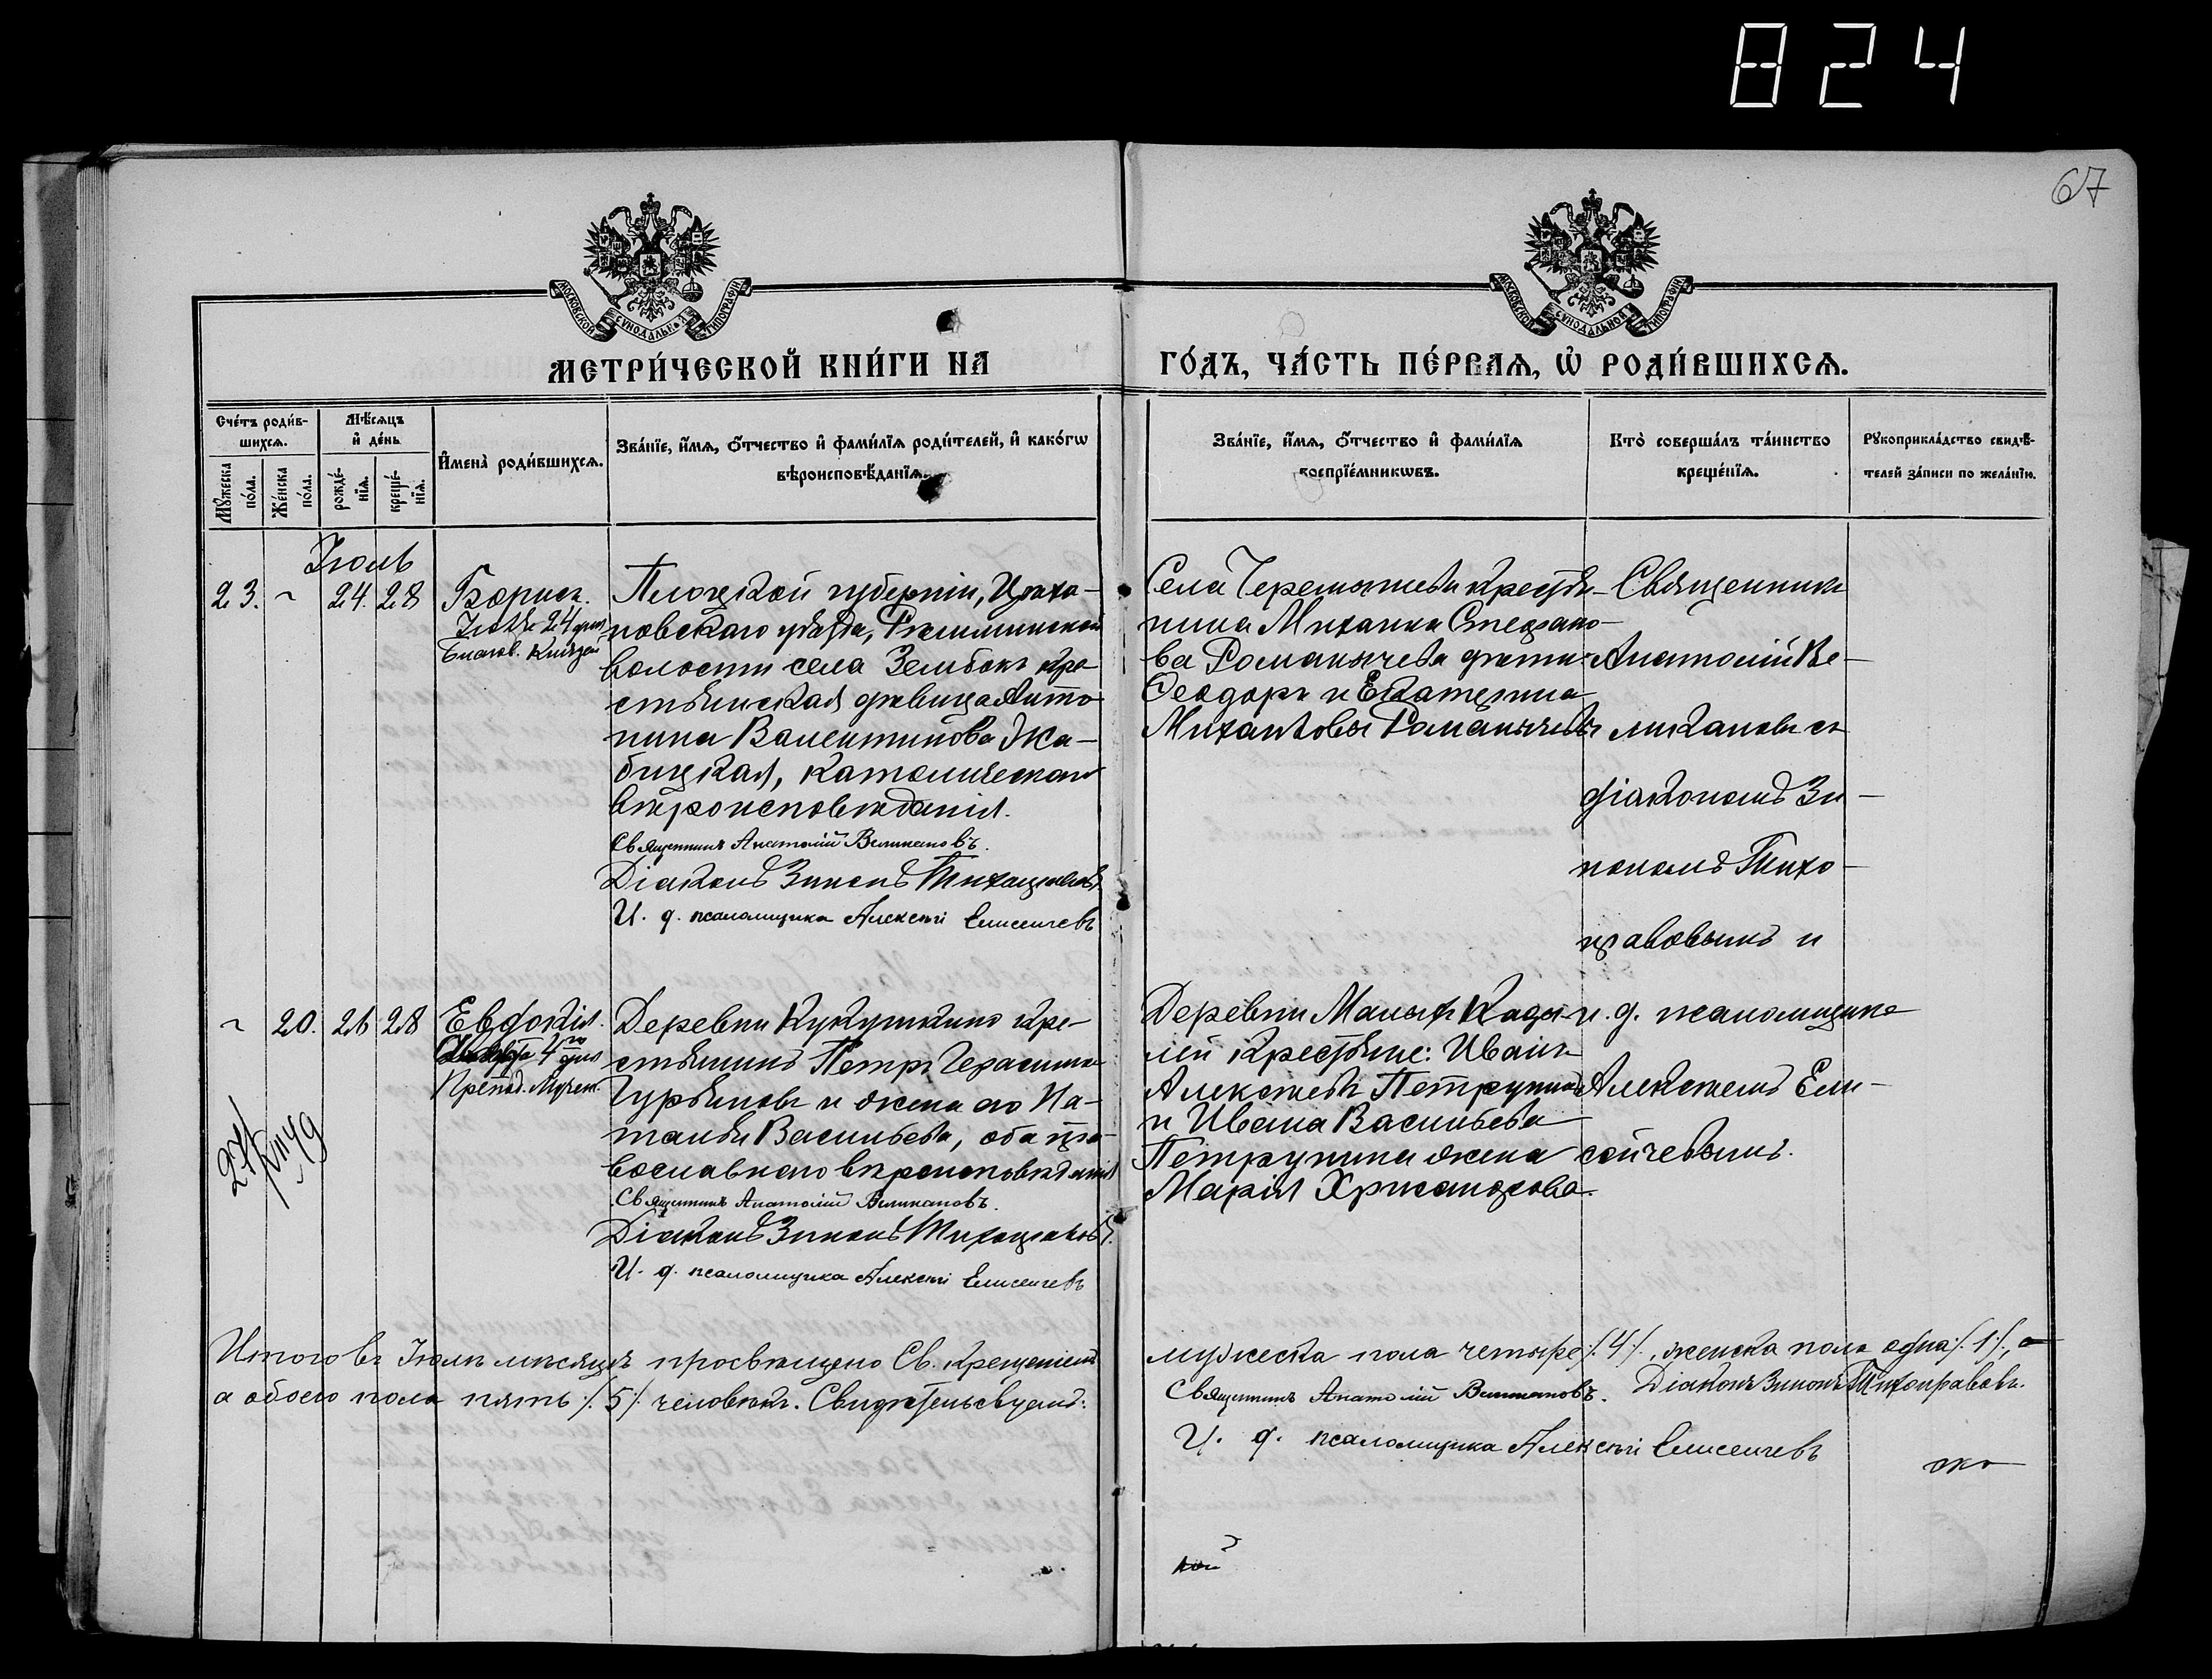 824
67
МОСКОВСКОЙ СѴНОДАЛЬНОЙ ТИПОГРАФІИ
МОСКОВСКОЙ СѴНОДАЛЬНОЙ ТИПОГРАФІИ
МЕТРИ́ЧЕСКОЙ КНИ́ГИ НА
ГО́ДЪ, ЧА́СТЬ ПЕ́РВАѦ, Ѡ҆ РОДИ́ВШИХСѦ.
Сче́тъ роди́в-
шихсѧ.
Мѣ́сѧцъ
и҆ де́нь
Мꙋ́жеска по́ла.
Же́нска по́ла.
рожде́-нїѧ.
креще́-нїѧ.
И҆мена̀ роди́вшихсѧ.
Зва́нїе, и҆́мѧ, ѻ҆́тчество и҆ фами́лїѧ роди́телей, и҆ како́гѡ
вѣроисповѣ́данїѧ.
Зва́нїе, и҆́мѧ, ѻ҆́тчество и҆ фами́лїѧ
воспрїе́мникѡвъ.
Кто̀ соверша́лъ та́инство
креще́нїѧ.
Рꙋкоприкла́дство свидѣ́-
телей за́писи по жела́нїю.
Іюль
23. ~ 24. 28
Борисъ.
Іюля 24 дня
Благов. Князей
Плоцкой губерніи, Цѣха-
новскаго уѣзда,
волости села Зембокъ кре-
стьянская дѣвица Анто-
нина Валентинова
католическаго
вѣроисповѣданія.
Священникъ Анатолій Великановъ.
Діаконъ Зинонъ Тихоправовъ.
И. д. псаломщика Алексѣй Елисеичевъ
Села Черемышева крестья-
нина Михаила Стефано-
ва Романычева дѣти:
Ѳеодоръ и Екатерина
Михаиловы Романычевы
Священникъ
Анатолій Ве-
ликановъ съ
діакономъ Зи-
нономъ Тихо-
правовымъ и
~ 20. 26 28
Евдокія.
Августа 4го дня
Препод. Мучен.
Деревни Кукушкино кре-
стьянинъ Петръ Герасимовъ
Гурьяновъ и жена его На-
талья Васильева, оба пра-
вославнаго вѣроисповѣданія
Священникъ Анатолій Великановъ.
Діаконъ Зинонъ Тихоправовъ.
И. д. псаломщика Алексѣй Елисеичевъ
Деревни Малыхъ Кады-
лей крестьяне: Иванъ
Алексѣевъ Петрунинъ
и Ивана Васильева
Петрунина жена
Марія Хрисанфова.
и. д. псаломщика
Алексѣемъ Ели-
сеичевымъ.
Итого въ Іюлѣ мѣсяцѣ просвѣщено Св. крещеніемъ
мужеска пола четыре /.4/., женска пола одна /.1/., а
а обоего пола пять /.5/. человѣкъ. Свидѣтельствуемъ:
Священникъ Анатолій Великановъ. Діаконъ Зинонъ Тихоправовъ.
И. д. псаломщика Алексѣй Елисеичевъ